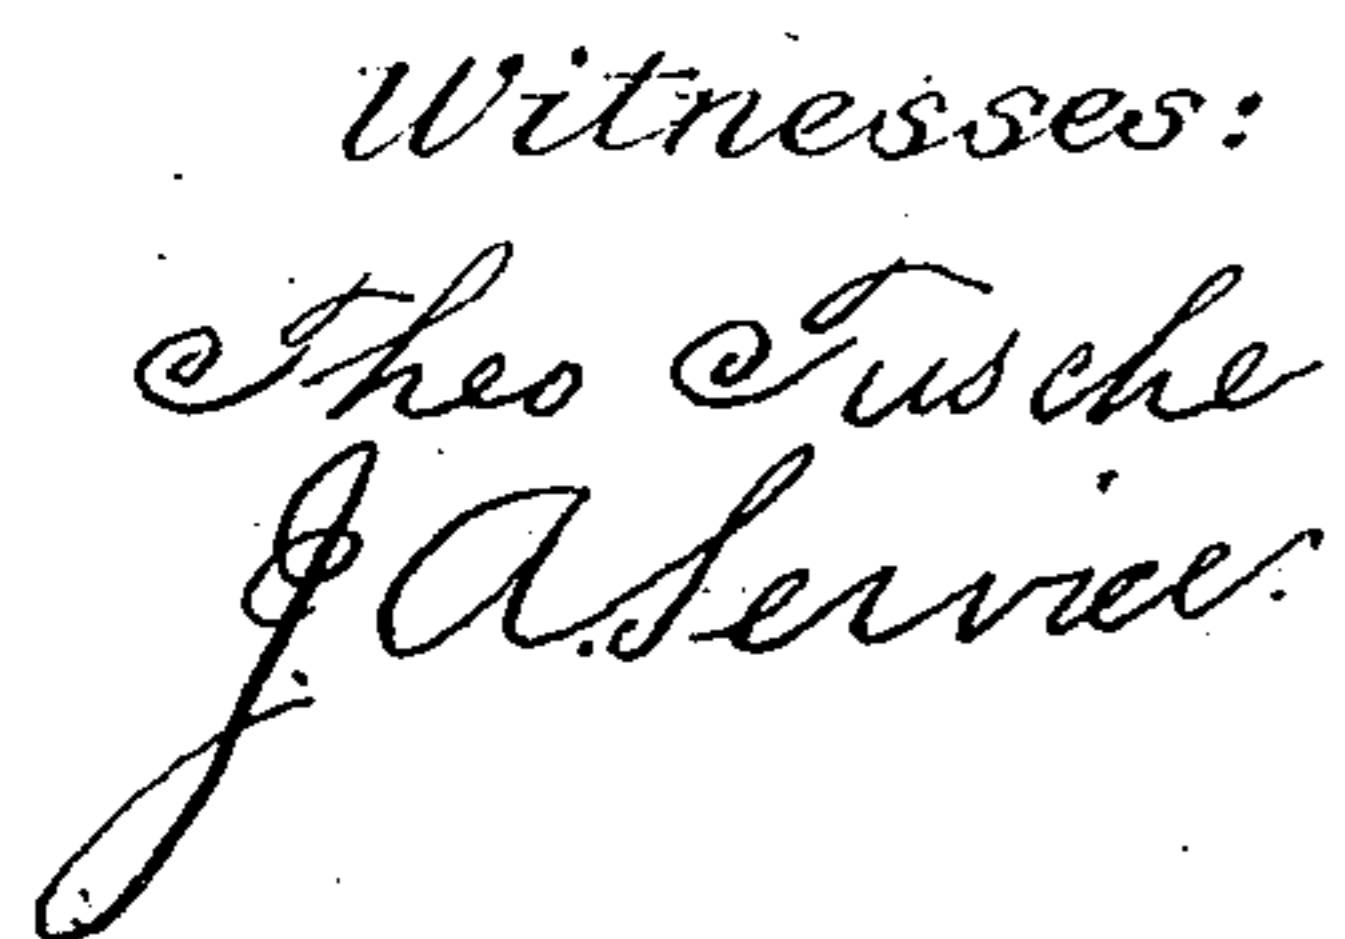 Witnesses:
Theo Tusche
J. A. Service.